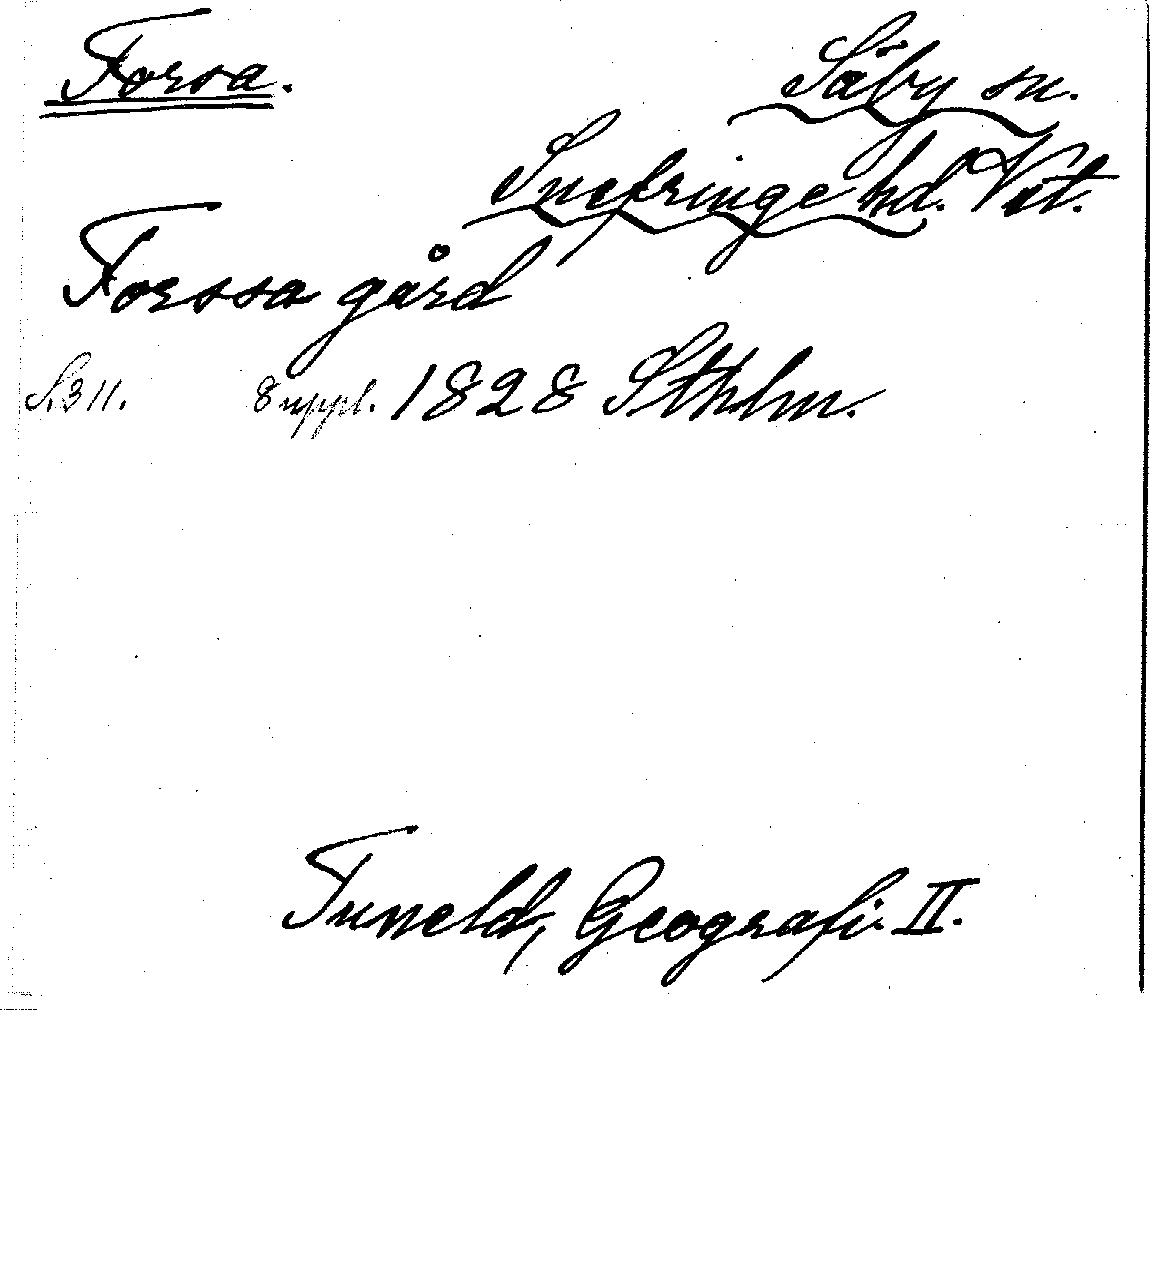 Forsa.
Säby sn.
Snefringe hd. Vst.
Forssa gård
S. 311. 8 uppl. 1828 Sthlm.
Tuneld, Geografi. II.